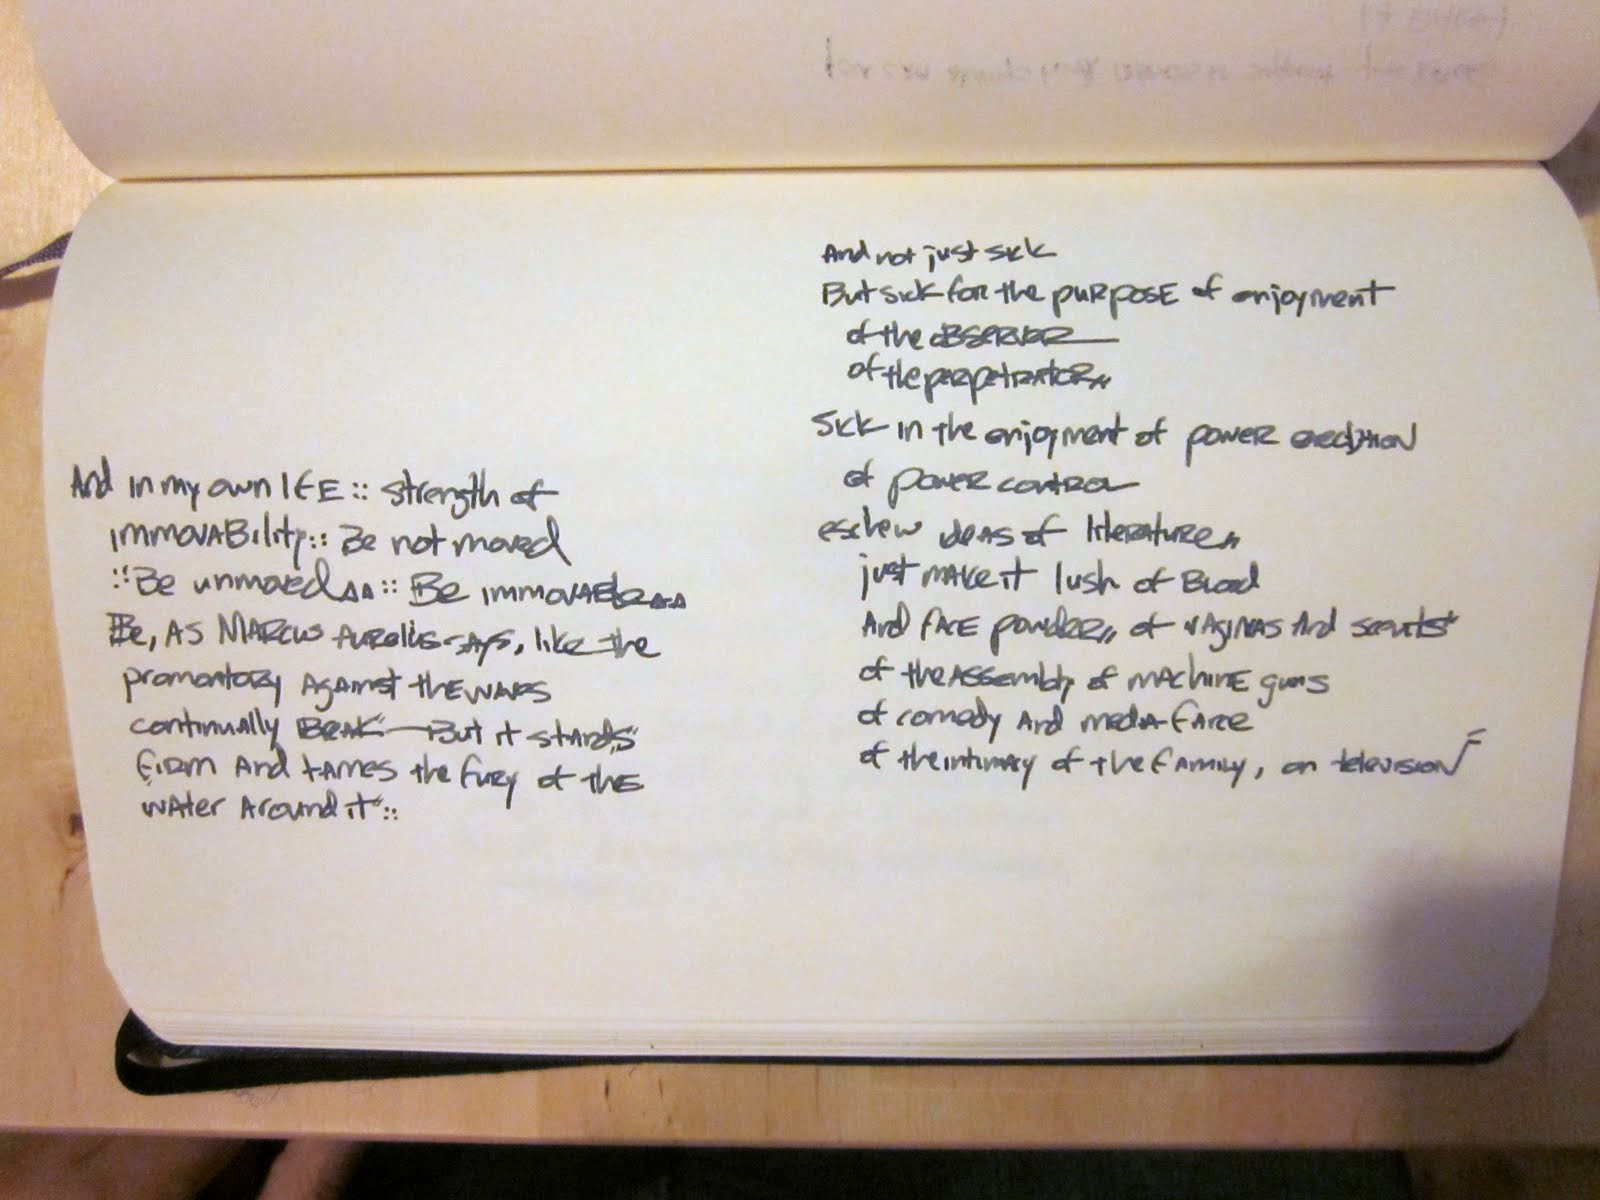 And in my own life :: strength of
immovability :: Be not moved
:: Be unmoved ΔΔ :: Be immovable ΔΔ
Be, as Marcus Aurelius says, "like the
promontory against the waves
continually break — But it stands
firm and tames the fury of the
water around it" ::
And not just sick
But sick for the purpose of enjoyment
of the observer
of the perpetrator,,
Sick in the enjoyment of power execution
of power control
eschew ideas of literature,,
just make it lush of Blood
And face powder,, of vaginas and
of the assembly of machine guns
of comedy and media farce
of the intimacy of the family, on television